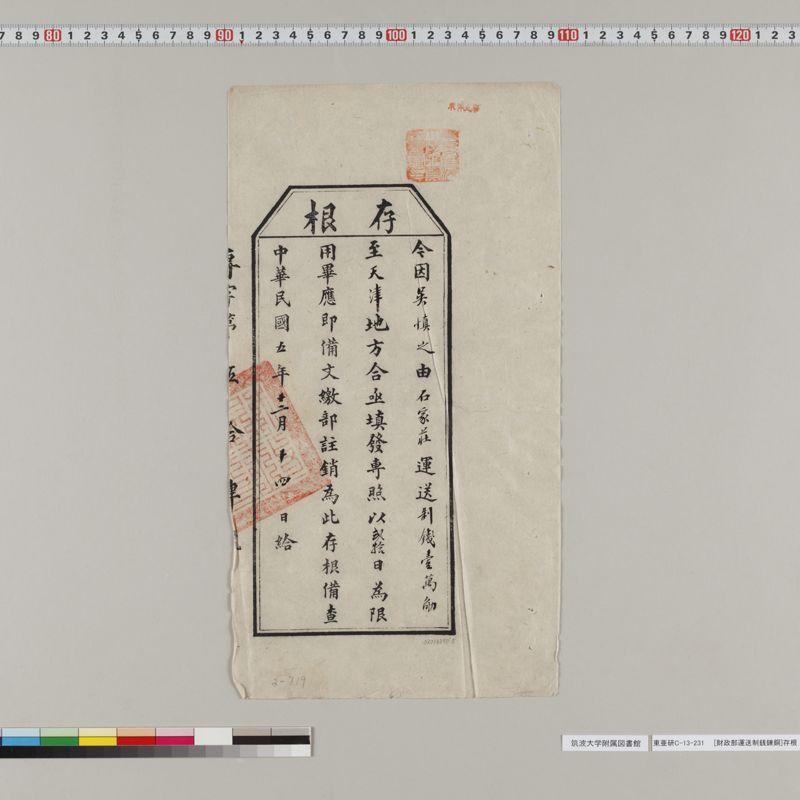 7 8 9 80 1 2 3 4 5 6 7 8 9 90 1 2 3 4 5 6 7 8 9 100 1 2 3 4 5 6 7 8 9 110 1 2 3 4 5 6 7 8 9 120 1 2 3
存根
今因吳慎之由石家莊運送制錢壹萬觔
至天津地方合亟填發專照以貳拾日為限
用畢應即備文繳部註銷為此存根備查
中華民國五年十二月十四日給
專字第伍拾肆
2-719
筑波大学附属図書館
東亜研C-13-231 [財政部運送制銭錬銅]存根